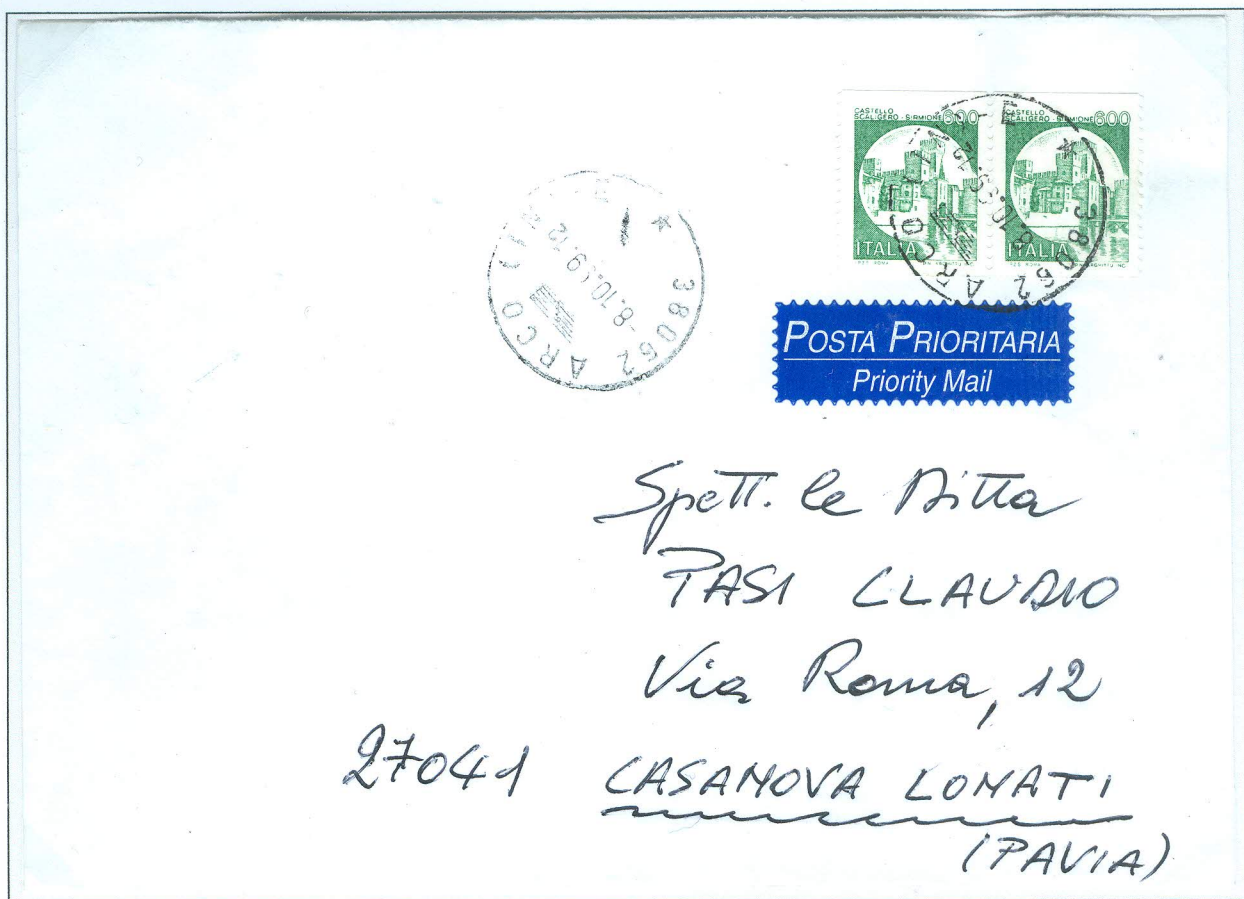 CASTELLO
SCALIGERO - SIRMIONE 600
ITALIA
CASTELLO
SCALIGERO - SIRMIONE 600
ITALIA
* 38062 ARCO (TN)
-8.10.99.12
* 38062 ARCO (TN)
-8.10.99.12
POSTA PRIORITARIA
Priority Mail
Spett. le Ditta
PASI CLAUDIO
Via Roma, 12
27041 CASANOVA LONATI
(PAVIA)